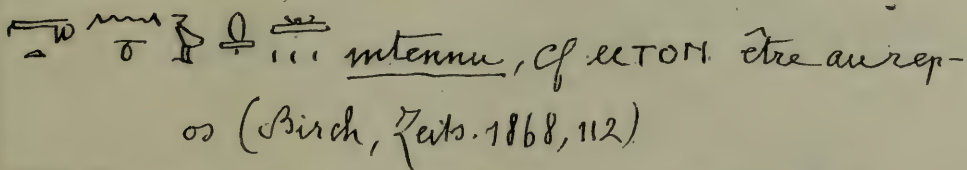 mtennu, Cf ⲙⲧⲟⲛ être au rep-
os (Birch, Zeits. 1868, 112)